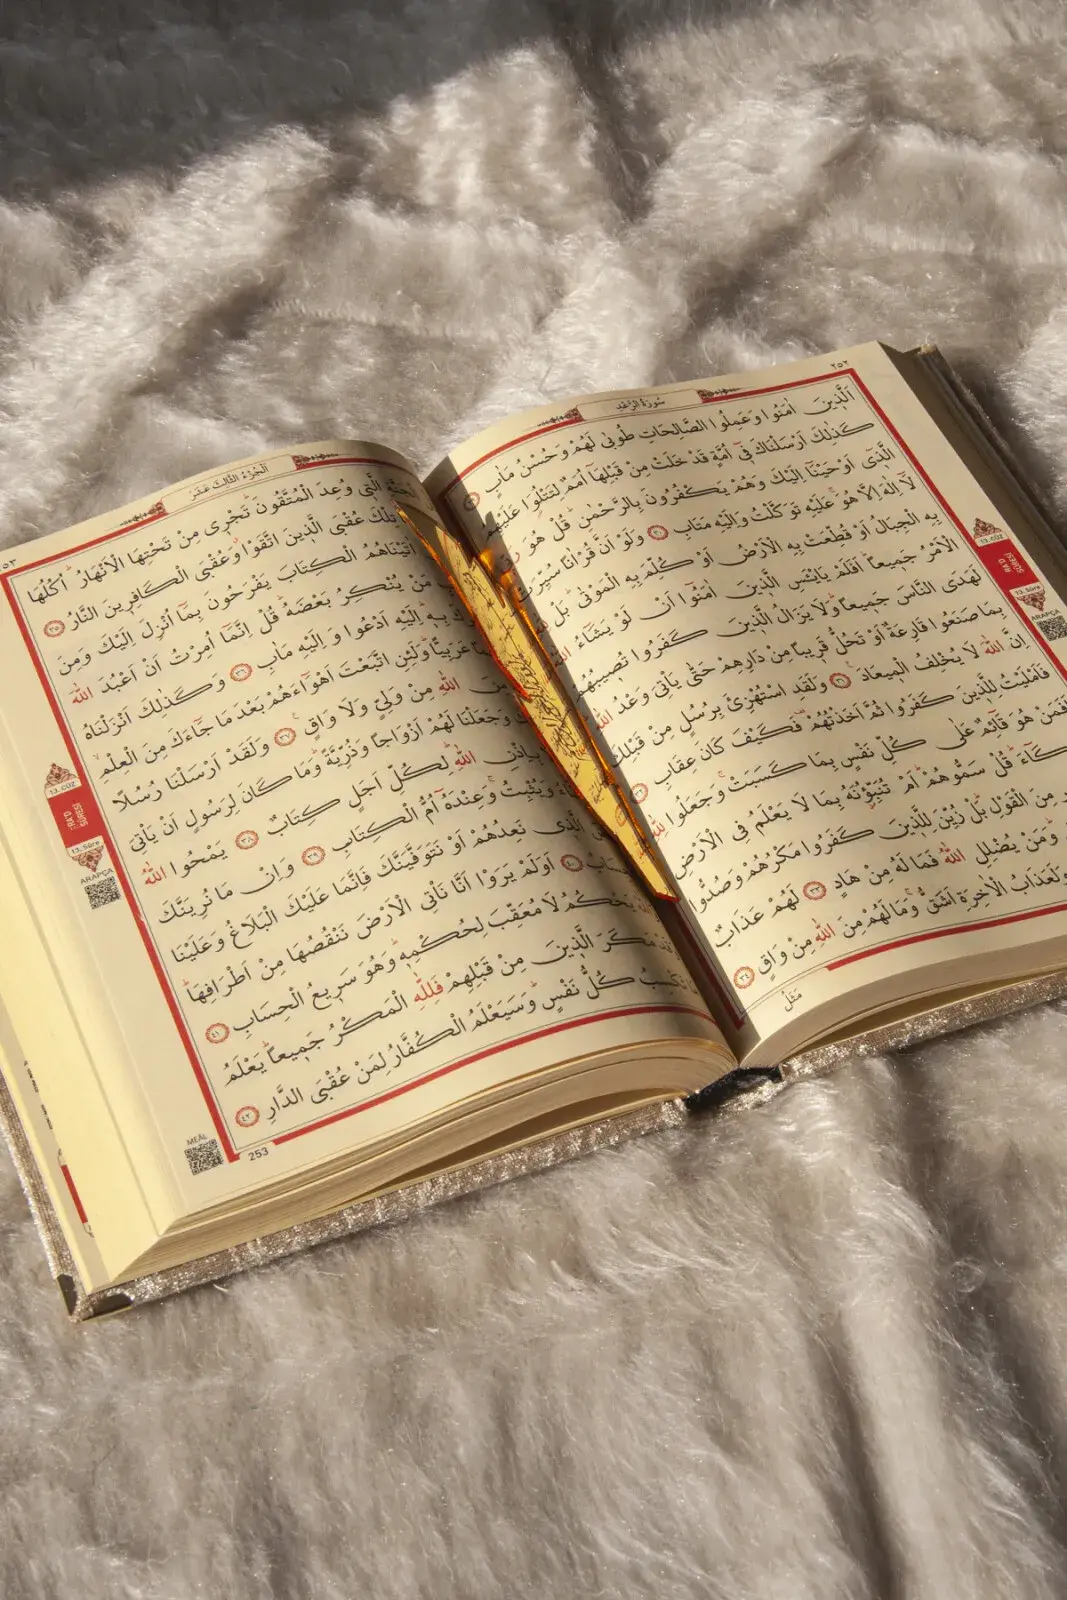 ٢٥٢
سُورَةُ الرَّعْدِ
اَلَّذٖينَ اٰمَنُوا وَعَمِلُوا الصَّالِحَاتِ طُوبٰى لَهُمْ وَحُسْنُ مَاٰبٍ ﴿٢٩﴾
كَذٰلِكَ اَرْسَلْنَاكَ فٖٓي اُمَّةٍ قَدْ خَلَتْ مِنْ قَبْلِهَٓا اُمَمٌ لِتَتْلُوَا عَلَيْهِمُ
الَّذٖٓي اَوْحَيْنَٓا اِلَيْكَ وَهُمْ يَكْفُرُونَ بِالرَّحْمٰنِ قُلْ هُوَ
لَٓا اِلٰهَ اِلَّا هُوَ عَلَيْهِ تَوَكَّلْتُ وَاِلَيْهِ مَتَابِ ﴿٣٠﴾ وَلَوْ اَنَّ قُرْاٰنًا سُيِّرَتْ
بِهِ الْجِبَالُ اَوْ قُطِّعَتْ بِهِ الْاَرْضُ اَوْ كُلِّمَ بِهِ الْمَوْتٰى بَلْ لِلّٰهِ
الْاَمْرُ جَمٖيعًا اَفَلَمْ يَايْـَٔسِ الَّذٖينَ اٰمَنُٓوا اَنْ لَوْ يَشَٓاءُ اللّٰهُ
لَهَدَى النَّاسَ جَمٖيعًا وَلَا يَزَالُ الَّذٖينَ كَفَرُوا تُصٖيبُهُمْ
بِمَا صَنَعُوا قَارِعَةٌ اَوْ تَحُلُّ قَرٖيبًا مِنْ دَارِهِمْ حَتّٰى يَاْتِيَ وَعْدُ اللّٰهِ
اِنَّ اللّٰهَ لَا يُخْلِفُ الْمٖيعَادَ ﴿٣١﴾ وَلَقَدِ اسْتُهْزِئَ بِرُسُلٍ مِنْ قَبْلِكَ
فَاَمْلَيْتُ لِلَّذٖينَ كَفَرُوا ثُمَّ اَخَذْتُهُمْ فَكَيْفَ كَانَ عِقَابِ ﴿٣٢﴾
اَفَمَنْ هُوَ قَٓائِمٌ عَلٰى كُلِّ نَفْسٍ بِمَا كَسَبَتْ وَجَعَلُوا لِلّٰهِ
قُلْ سَمُّوهُمْ اَمْ تُنَبِّؤُنَهُ بِمَا لَا يَعْلَمُ فِي الْاَرْضِ
مِنَ الْقَوْلِ بَلْ زُيِّنَ لِلَّذٖينَ كَفَرُوا مَكْرُهُمْ وَصُدُّوا
وَمَنْ يُضْلِلِ اللّٰهُ فَمَا لَهُ مِنْ هَادٍ ﴿٣٣﴾ لَهُمْ عَذَابٌ
وَلَعَذَابُ الْاٰخِرَةِ اَشَقُّ وَمَا لَهُمْ مِنَ اللّٰهِ مِنْ وَاقٍ ﴿٣٤﴾
مَثَلُ
13. CÜZ
RA'D SÛRESİ
13. Sûre
ARAPÇA
اَلْجُزْءُ الثَّالِثَ عَشَرَ
الَّتٖي وُعِدَ الْمُتَّقُونَ تَجْرٖي مِنْ تَحْتِهَا الْاَنْهَارُ اُكُلُهَا
تِلْكَ عُقْبَى الَّذٖينَ اتَّقَوْا وَعُقْبَى الْكَافِرٖينَ النَّارُ ﴿٣٥﴾
اٰتَيْنَاهُمُ الْكِتَابَ يَفْرَحُونَ بِمَٓا اُنْزِلَ اِلَيْكَ وَمِنَ
مَنْ يُنْكِرُ بَعْضَهُ قُلْ اِنَّمَٓا اُمِرْتُ اَنْ اَعْبُدَ اللّٰهَ
بِهٖ اِلَيْهِ اَدْعُوا وَاِلَيْهِ مَاٰبِ ﴿٣٦﴾ وَكَذٰلِكَ اَنْزَلْنَاهُ
عَرَبِيًّا وَلَئِنِ اتَّبَعْتَ اَهْوَٓاءَهُمْ بَعْدَ مَا جَٓاءَكَ مِنَ الْعِلْمِ
مِنَ اللّٰهِ مِنْ وَلِيٍّ وَلَا وَاقٍ ﴿٣٧﴾ وَلَقَدْ اَرْسَلْنَا رُسُلًا
وَجَعَلْنَا لَهُمْ اَزْوَاجًا وَذُرِّيَّةً وَمَا كَانَ لِرَسُولٍ اَنْ يَاْتِيَ
بِاِذْنِ اللّٰهِ لِكُلِّ اَجَلٍ كِتَابٌ ﴿٣٨﴾ يَمْحُوا اللّٰهُ
وَيُثْبِتُ وَعِنْدَهُٓ اُمُّ الْكِتَابِ ﴿٣٩﴾ وَاِنْ مَا نُرِيَنَّكَ
الَّذٖي نَعِدُهُمْ اَوْ نَتَوَفَّيَنَّكَ فَاِنَّمَا عَلَيْكَ الْبَلَاغُ وَعَلَيْنَا
﴿٤٠﴾ اَوَلَمْ يَرَوْا اَنَّا نَاْتِي الْاَرْضَ نَنْقُصُهَا مِنْ اَطْرَافِهَا
يَحْكُمُ لَا مُعَقِّبَ لِحُكْمِهٖ وَهُوَ سَرٖيعُ الْحِسَابِ ﴿٤١﴾
مَكَرَ الَّذٖينَ مِنْ قَبْلِهِمْ فَلِلّٰهِ الْمَكْرُ جَمٖيعًا يَعْلَمُ
تَكْسِبُ كُلُّ نَفْسٍ وَسَيَعْلَمُ الْكُفَّارُ لِمَنْ عُقْبَى الدَّارِ ﴿٤٢﴾
13. CÜZ
RA'D SÛRESİ
13. Sûre
ARAPÇA
MEÂL
253